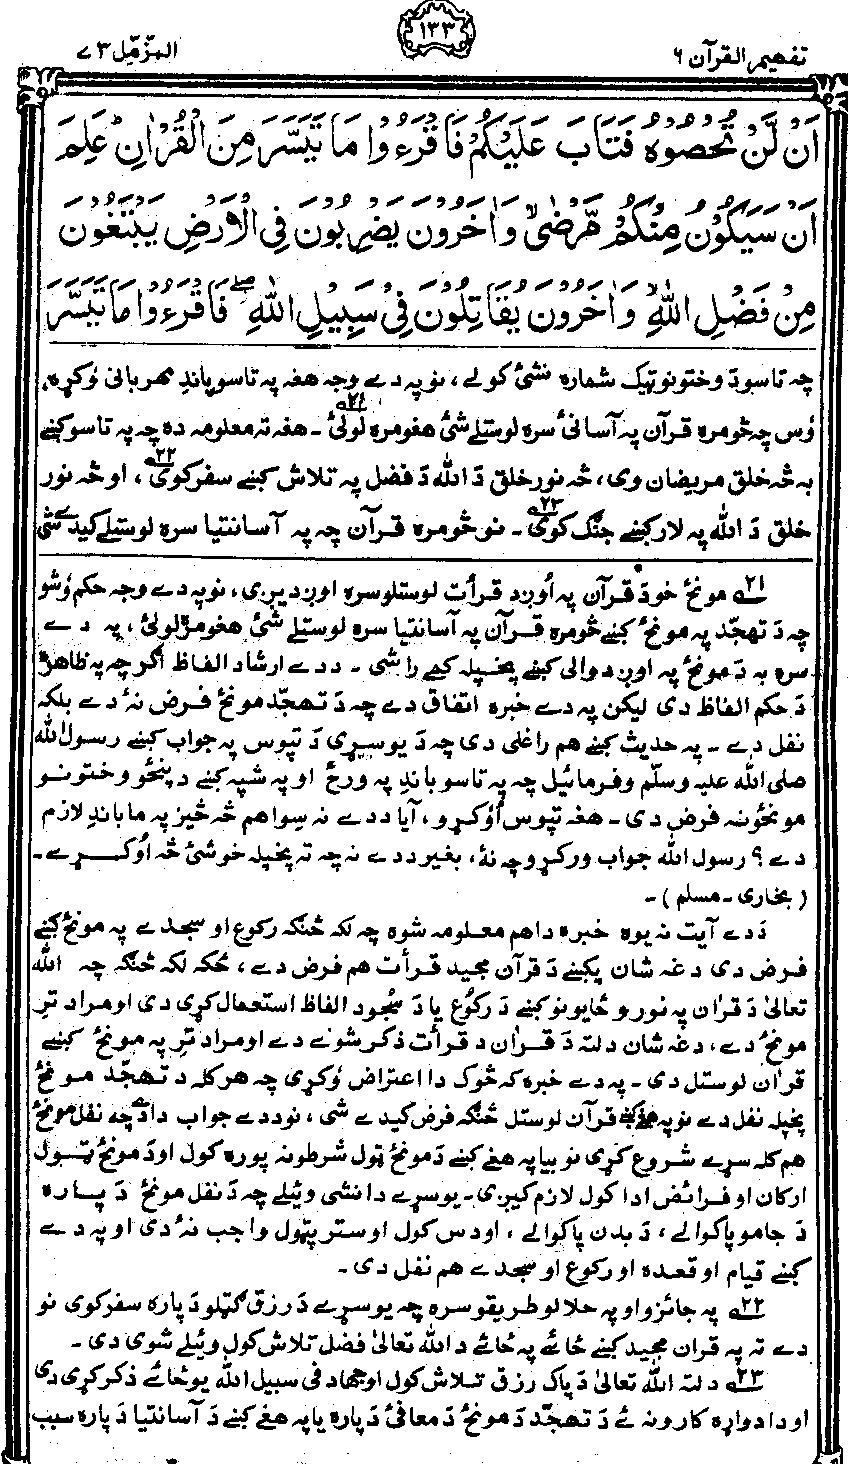 تفهیم القرآن ۶
۱۳۳
المزّمّل ۷۳
اَنْ لَّنْ تُحْصُوْهُ فَتَابَ عَلَيْكُمْ فَاقْرَءُوْا مَا تَيَسَّرَ مِنَ الْقُرْاٰنِ ؕ عَلِمَ
اَنْ سَيَكُوْنُ مِنْكُمْ مَّرْضٰىۙ وَاٰخَرُوْنَ يَضْرِبُوْنَ فِي الْاَرْضِ يَبْتَغُوْنَ
مِنْ فَضْلِ اللّٰهِۙ وَاٰخَرُوْنَ يُقَاتِلُوْنَ فِيْ سَبِيْلِ اللّٰهِ ۖ فَاقْرَءُوْا مَا تَيَسَّرَ
چه تاسو دَ وختونو ټیک شماره نشئ کولے ، نو په دے وجه هغه په تاسو باندِ مهربانی وُکړه،
وُس چه څومره قرآن په آسانئ سره لوستلے شئ هغومره لولئ۲۱ ۔ هغه ته معلومه ده چه په تاسو کښے
به څه خلق مریضان وی، څه نور خلق دَ الله دَ فضل په تلاش کښے سفر کوی۲۲ ، او څه نور
خلق دَ الله په لار کښے جنګ کوی۲۳ ۔ نو څومره قرآن چه په آسانتیا سره لوستلے کیدے شی
۲۱ مونځ خو دَ قرآن په اُوږد قرأت لوستلو سره اوږدیږی، نو په دے وجه حکم وُشو
چه دَ تهجّد په مونځ کښے څومره قرآن په آسانتیا سره لوستلے شئ هغومره لولئ ، په دے
سره به دَ مونځ په اوږدوالی کښے پخپله کمے راشی ۔ ددے ارشاد الفاظ اګرچه په ظاهره
دَ حکم الفاظ دی لیکن په دے خبره اتفاق دے چه دَ تهجّد مونځ فرض نهٔ دے بلکه
نفل دے ۔ په حدیث کښے هم راغلی دی چه دَ یو سړی دَ تپوس په جواب کښے رسول الله
صلی الله علیه وسلّم وفرمائیل چه په تاسو باندِ په ورځ او په شپه کښے دَ پنځو وختونو
مونځونه فرض دی ۔ هغه تپوس اُوکړو، آیا ددے نه سوا هم څه څیز په ما باندِ لازم
دے ؟ رسول الله جواب ورکړو چه نهٔ، بغیر ددے نه چه ته پخپله خوشئ څه اُوکړے۔
( بخاری ۔ مسلم ) ۔
دَ دے آیت نه یوه خبره دا هم معلومه شوه چه لکه څنګه رکوع او سجدے په مونځ کښے
فرض دی دغه شان پکښے دَ قرآن مجید قرأت هم فرض دے ، ځکه لکه څنګه چه الله
تعالیٰ دَ قرآن په نورو ځایونو کښے دَ رکوع یا دَ سجُود الفاظ استعمال کړی دی او مراد ترِ
مونځ دے ، دغه شان دلته دَ قرآن دَ قرأت ذکر شوے دے او مراد ترِ په مونځ کښے
قرآن لوستل دی ۔ په دے خبره که څوک دا اعتراض وُکړی چه هر کله دَ تهجّد مونځ
پخپله نفل دے نو په هغے کښے قرآن لوستل څنګه فرض کیدے شی ، نو ددے جواب دادے چه نفل مونځ
هم کله سړے شروع کړی نو بیا په هغے کښے دَ مونځ ټول شرطونه پوره کول او دَ مونځ ټول
ارکان او فرائض ادا کول لازم کیږی ۔ یو سړے دا نشی وئیلے چه دَ نفل مونځ دَ پاره
دَ جامو پاکوالے ، دَ بدن پاکوالے ، اودس کول او ستر پټول واجب نهٔ دی او په دے
کښے قیام او قعده او رکوع او سجدے هم نفل دی ۔
۲۲ په جائزو او په حلالو طریقو سره چه یو سړے دَ رزق ګټلو دَ پاره سفر کوی نو
دے ته په قرآن مجید کښے ځائے په ځائے دَ الله تعالیٰ فضل تلاش کول وئیلے شوی دی ۔
۲۳ دلته الله تعالیٰ دَ پاک رزق تلاش کول او جهاد فی سبیل الله یو ځائے ذکر کړی دی
او دا دواړه کارونه ئے دَ تهجّد دَ مونځ دَ معافئ دَ پاره یا په هغے کښے دَ آسانتیا دَ پاره سبب